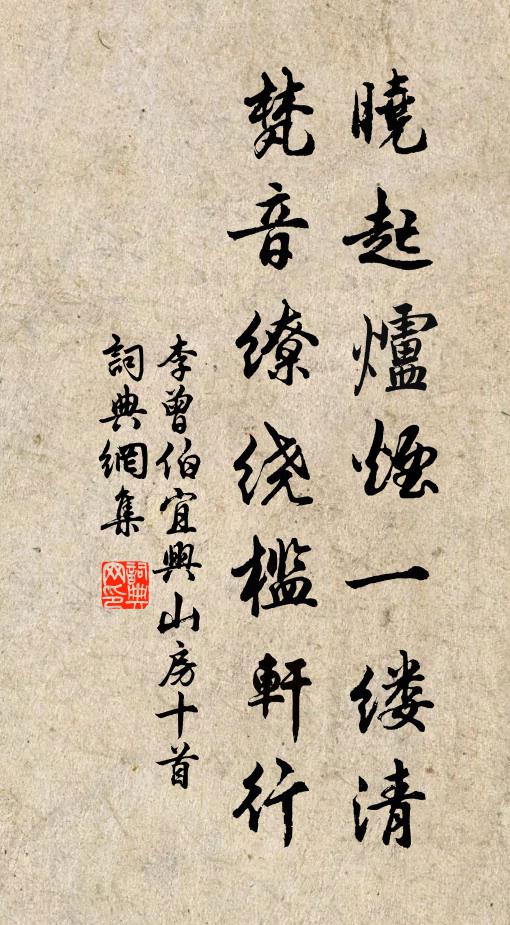 曉起爐煙一缕清
梵音缭绕檻軒行
李曾伯宜興山房十首
詞典網集
詞典网印